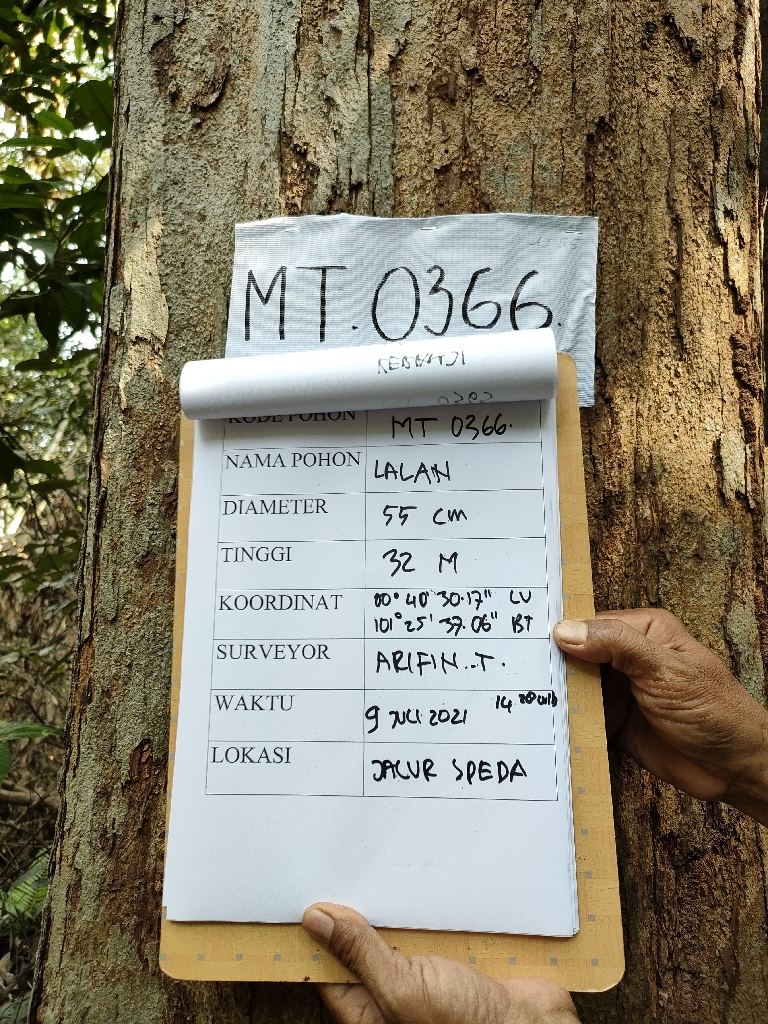 MT. 0366.
KODE POHON MT 0366.
NAMA POHON LALAN
DIAMETER 55 cm
TINGGI 32 M
KOORDINAT 00° 40' 30.17" LU
101° 25' 37.06" BT
SURVEYOR ARIFIN..T.
WAKTU 9 JULI 2021 14.28 wib
LOKASI JALUR SPEDA